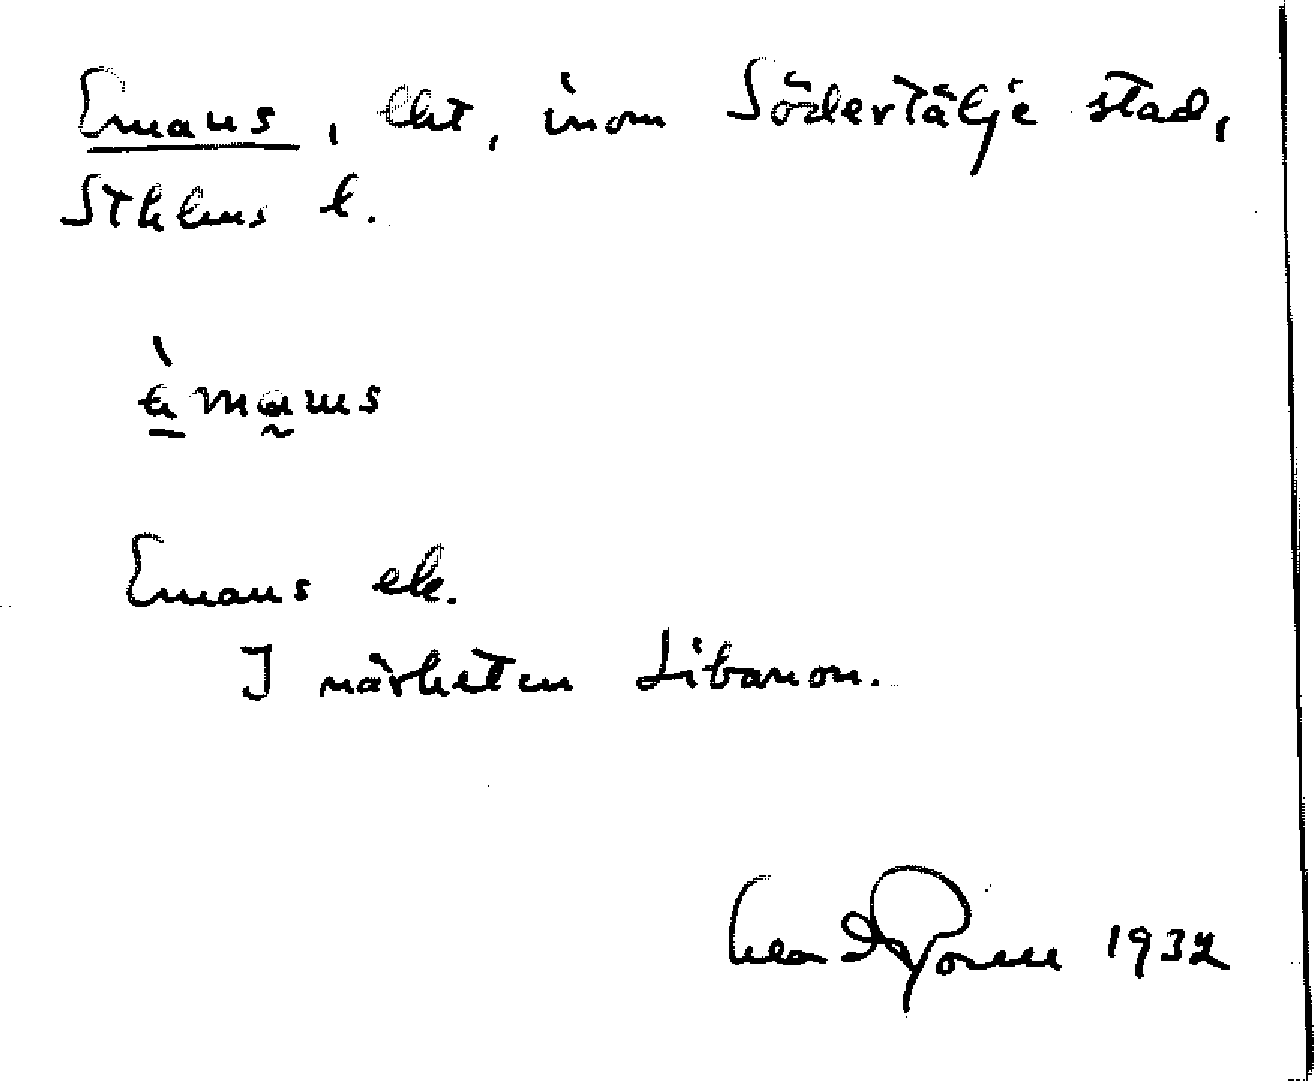 Emaus, lht, inom Södertälje stad,
Sthlms l.
è̱ma̰us
Emaus ek.
I närheten Libanon.
1932